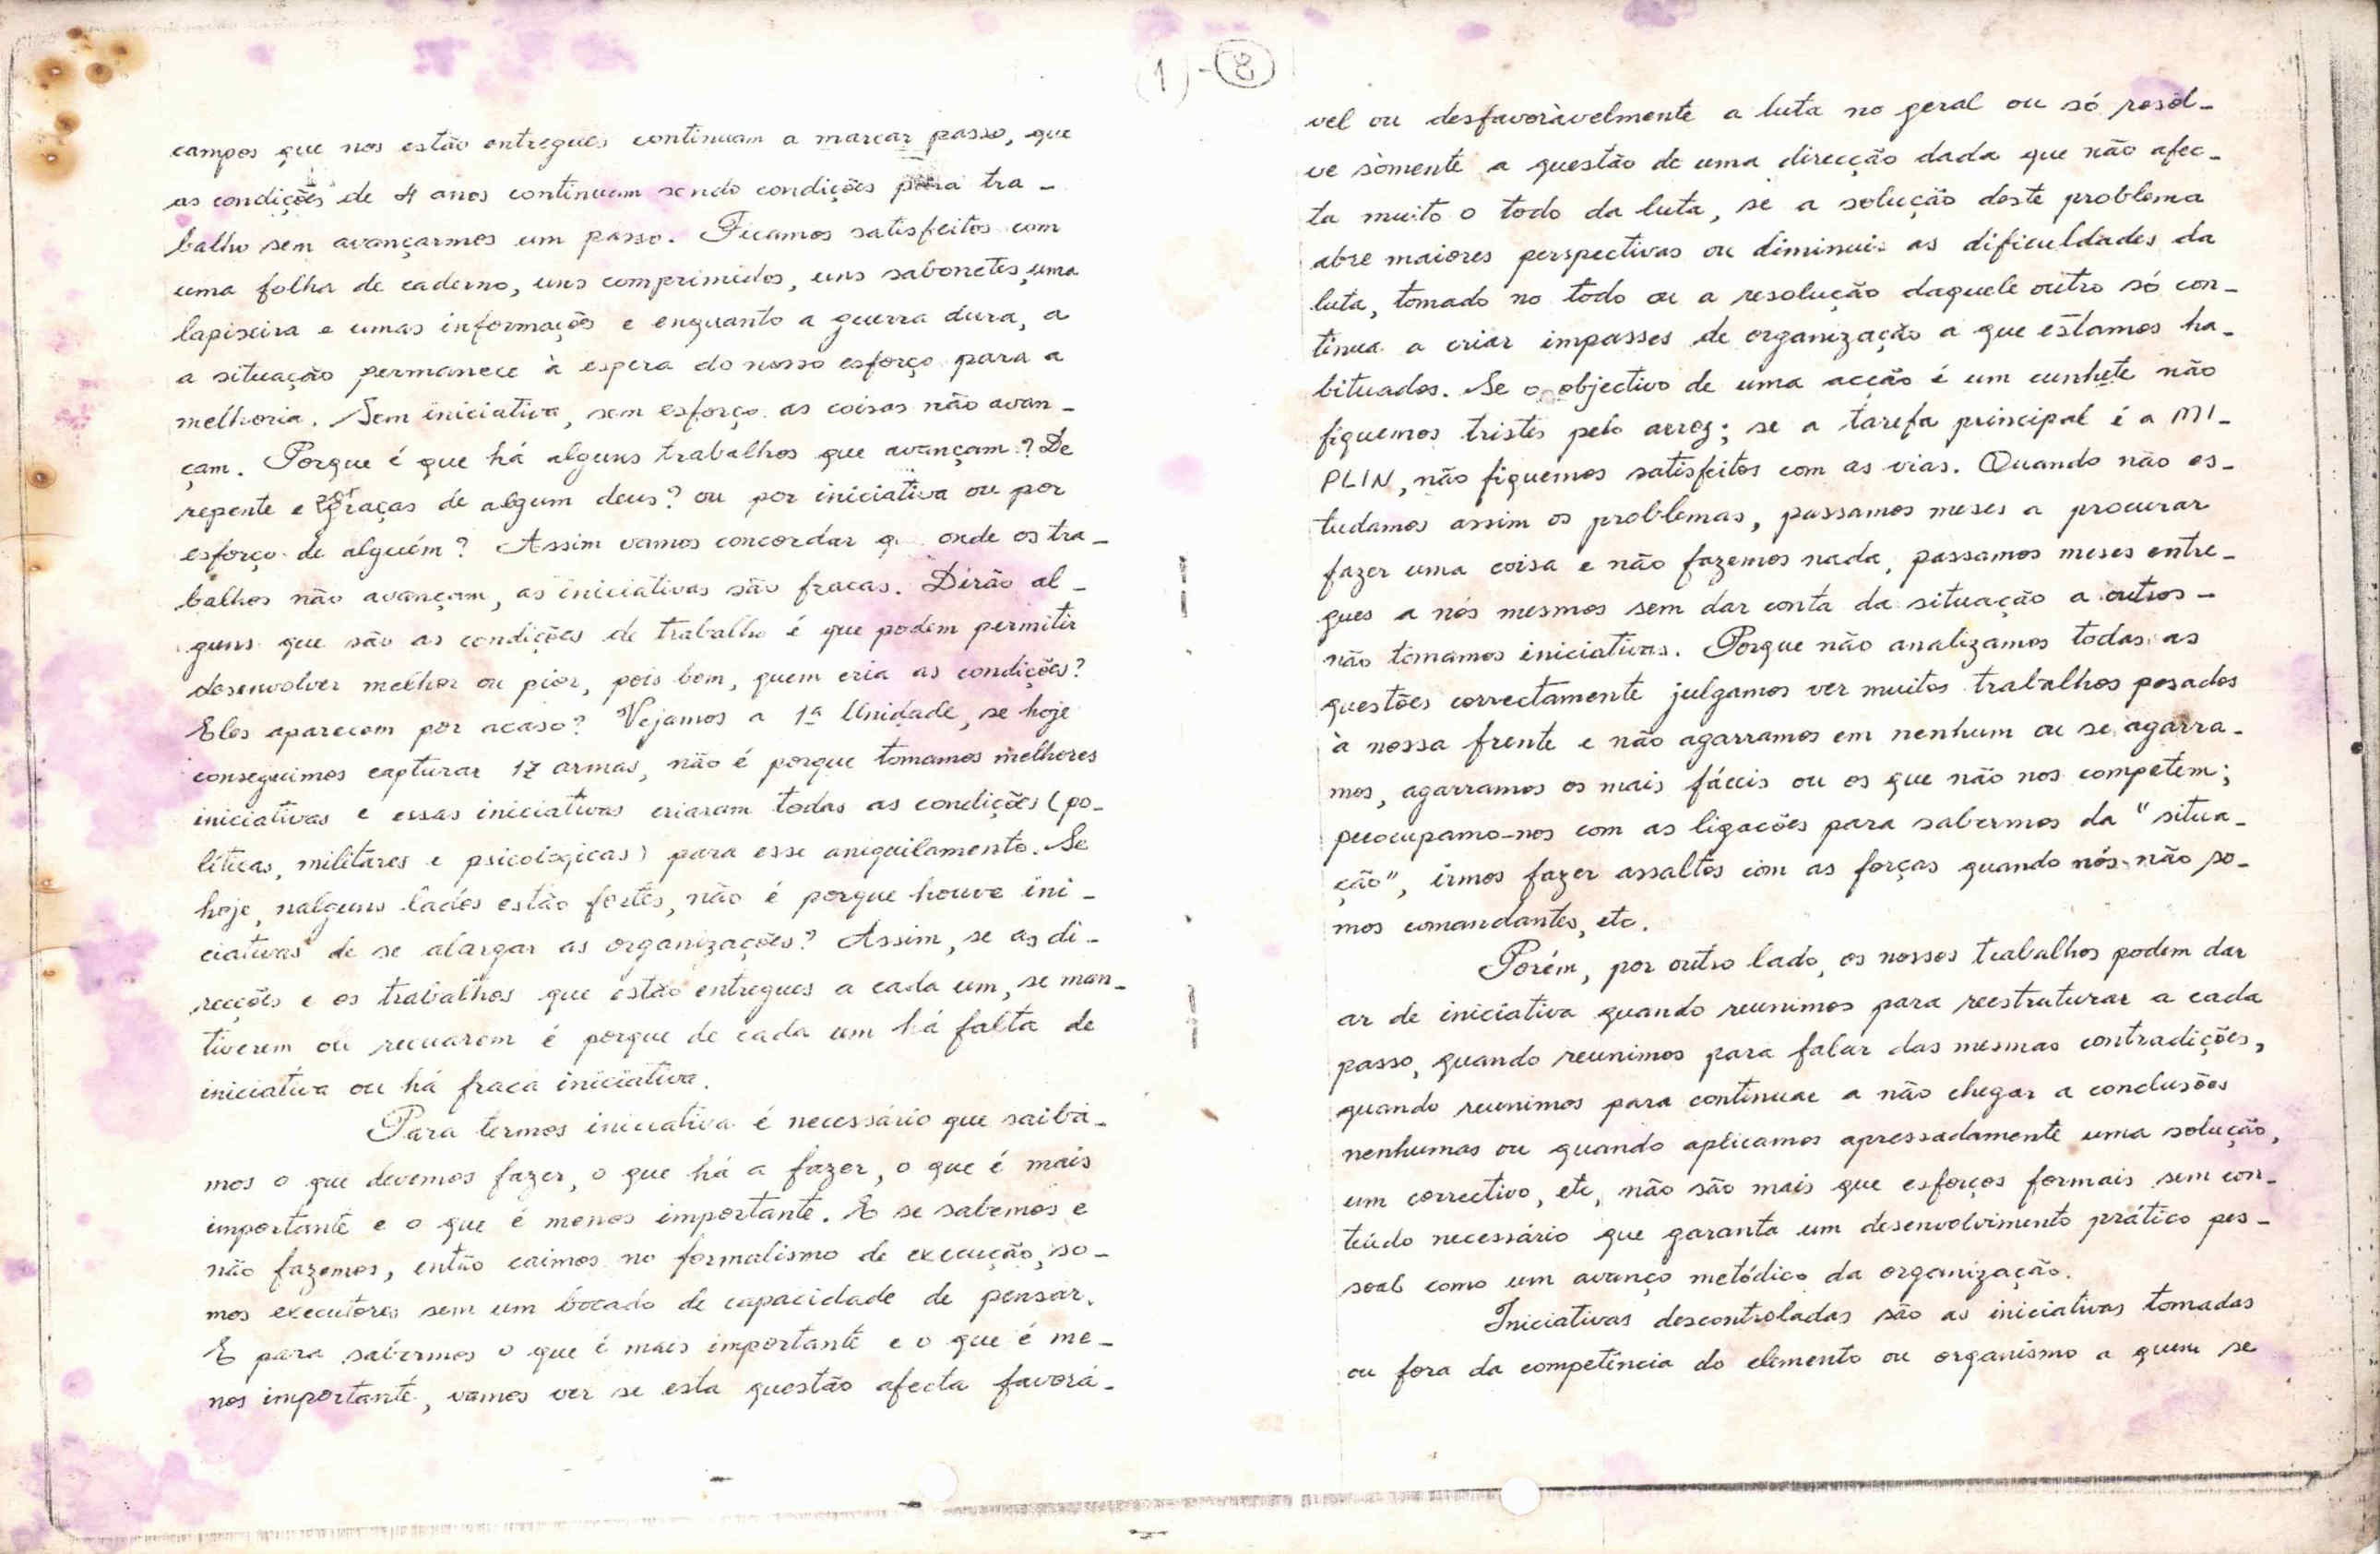 (1) - 8
campos que nos estão entregues continuam a marcar passo, que
as condições de 4 anos continuam sendo condições para tra-
balho sem avançarmos um passo. Ficamos satisfeitos com
uma folha de caderno, uns comprimidos, uns sabonetes, uma
lapiseira e umas informações e enquanto a guerra dura, a
a situação permanece à espera do nosso esforço para a
melhoria. Sem iniciativa, sem esforço as coisas não avan-
çam. Porque é que há alguns trabalhos que avançam? De
repente e graças de algum deus? ou por iniciativa ou por
esforço de alguém? Assim vamos concordar q. onde os tra-
balhos não avançam, as iniciativas são fracas. Dirão al-
guns que são as condições de trabalho é que podem permitir
desenvolver melhor ou pior, pois bem, quem cria as condições?
Elas aparecem por acaso? Vejamos a 1ª Unidade, se hoje
conseguimos capturar 17 armas, não é porque tomamos melhores
iniciativas e essas iniciativas criaram todas as condições (po-
líticas, militares e psicologicas) para esse aniquilamento. Se
hoje, nalguns lados estão fortes, não é porque houve ini-
ciativas de se alargar as organizações? Assim, se as di-
recções e os trabalhos que estão entregues a cada um, se man-
tiverem ou recuarem é porque de cada um há falta de
iniciativa ou há fraca iniciativa.
Para termos iniciativa é necessário que saiba-
mos o que devemos fazer, o que há a fazer, o que é mais
importante e o que é menos importante. E se sabemos e
não fazemos, então caimos no formalismo de execução, so-
mos executores sem um bocado de capacidade de pensar.
E para sabermos o que é mais importante e o que é me-
nos importante, vamos ver se esta questão afecta favorá-
vel ou desfavoràvelmente a luta no geral ou só resol-
ve sòmente a questão de uma direcção dada que não afec-
ta muito o todo da luta, se a solução deste problema
abre maiores perspectivas ou diminui as dificuldades da
luta, tomado no todo ou a resolução daquele outro só con-
tinua a criar impasses de organização a que estamos ha-
bituados. Se o objectivo de uma acção é um cunhete não
fiquemos tristes pelo arroz; se a tarefa principal é a MI-
PLIN, não fiquemos satisfeitos com as vias. Quando não es-
tudamos assim os problemas, passamos meses a procurar
fazer uma coisa e não fazemos nada, passamos meses entre-
gues a nós mesmos sem dar conta da situação a outros -
não tomamos iniciativas. Porque não analizamos todas as
questões correctamente julgamos ver muitos trabalhos pesados
à nossa frente e não agarramos em nenhum ou se agarra-
mos, agarramos os mais fáceis ou os que não nos competem;
preocupamo-nos com as ligacões para sabermos da "situa-
ção", irmos fazer assaltos com as forças quando nós não so-
mos comandantes, etc.
Porém, por outro lado, os nossos trabalhos podem dar
ar de iniciativa quando reunimos para reestruturar a cada
passo, quando reunimos para falar das mesmas contradições,
quando reunimos para continuar a não chegar a conclusões
nenhumas ou quando aplicamos apressadamente uma solução,
um correctivo, etc, não são mais que esforços formais sem con-
teúdo necessário que garanta um desenvolvimento prático pes-
soal como um avanço metódico da organização.
Iniciativas descontroladas são as iniciativas tomadas
ou fora da competência do elemento ou organismo a quem se